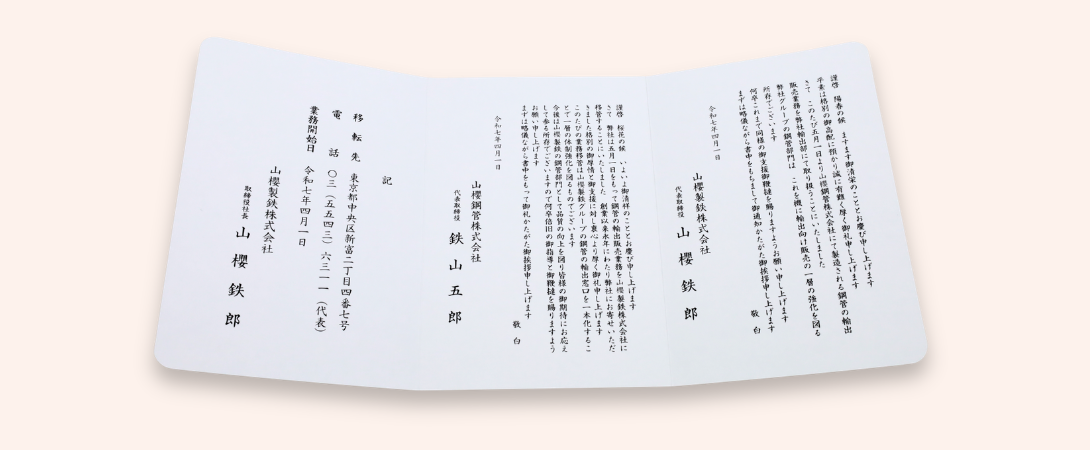 謹啓　陽春の候　ますます御清栄のこととお慶び申し上げます
平素は格別の御高配に預かり誠に有難く厚く御礼申し上げます
さて　このたび五月一日より山櫻鋼管株式会社にて製造される鋼管の輸出
販売業務を弊社輸出部にて取り扱うことにいたしました
弊社グループの鋼管部門は　これを機に輸出向け販売の一層の強化を図る
所存でございます
何卒これまで同様の御支援御鞭撻を賜りますようお願い申し上げます
まずは略儀ながら書中をもちまして御通知かたがた御挨拶申し上げます
敬　白
令和七年四月一日
山櫻製鉄株式会社
代表取締役　山　櫻　鉄　郎
謹啓　桜花の候　いよいよ御清祥のこととお慶び申し上げます
さて　弊社は五月一日をもって鋼管の輸出販売業務を山櫻製鉄株式会社に
移管することにいたしました　創業以来永年にわたり弊社にお寄せいただ
きました格別の御厚情と御支援に対し衷心より厚く御礼申し上げます
このたびの業務移管は山櫻製鉄グループの鋼管の輸出窓口を一本化するこ
とで一層の体制強化を図るものでございます
今後は山櫻製鉄の鋼管部門として品質の向上を図り皆様の御期待にお応え
して参る所存でございますので何卒倍旧の御指導と御鞭撻を賜りますよう
お願い申し上げます
まずは略儀ながら書中をもって御礼かたがた御挨拶申し上げます
敬　白
令和七年四月一日
山櫻鋼管株式会社
代表取締役　鉄　山　五　郎
記
移転先　東京都中央区新富二丁目四番七号
電　話　〇三（五五四三）六三一一（代表）
業務開始日　令和七年四月一日
山櫻製鉄株式会社
取締役社長　山　櫻　鉄　郎